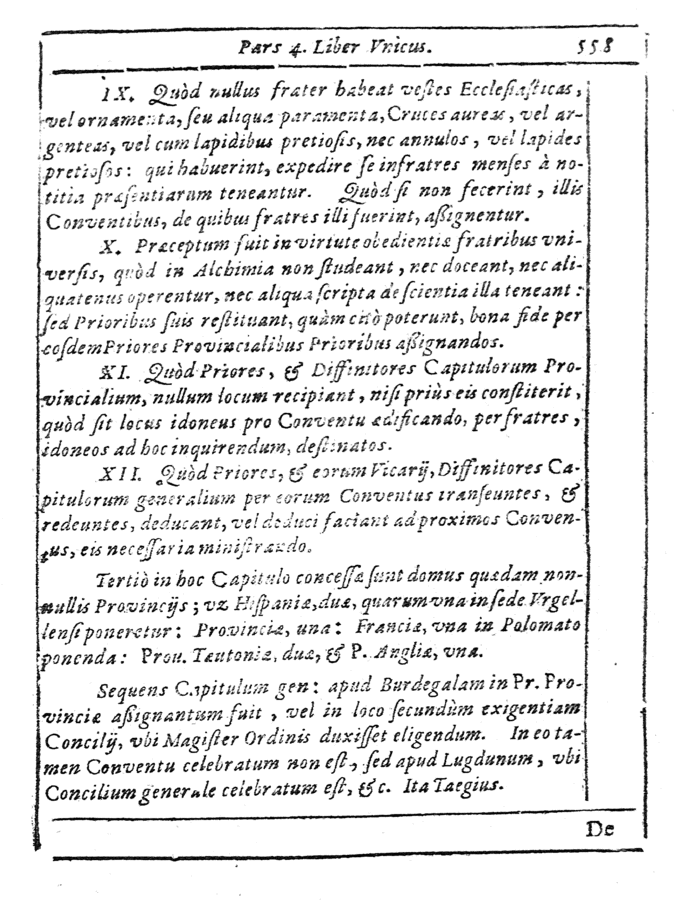 Pars 4. Liber Vnicus. 558
IX. Quòd nullus frater habeat vestes Ecclesiasticas,
vel ornamenta, seu aliqua paramenta, Cruces aureas, vel ar-
genteas, vel cum lapidibus pretiosis, nec annulos, vel lapides
pretiosos: qui habuerint, expedire se infra tres menses à no-
titia præsentiarum teneantur. Quòd si non fecerint, illis
Conventibus, de quibus fratres illi fuerint, assignentur.
X. Præceptum fuit in virtute obedientiæ fratribus vni-
versis, quòd in Alchimia non studeant, nec doceant, nec ali-
quatenus operentur, nec aliqua scripta de scientia illa teneant:
sed Prioribus suis restituant, quàm citò poterunt, bona fide per
eosdem Priores Provincialibus Prioribus assignandos.
XI. Quòd Priores, & Diffinitores Capitulorum Pro-
vincialium, nullum locum recipiant, nisi priùs eis constiterit,
quòd sit locus idoneus pro Conventu ædificando, per fratres,
idoneos ad hoc inquirendum, destinatos.
XII. Quòd Priores, & eorum Vicarij, Diffinitores Ca-
pitulorum generalium per eorum Conventus transeuntes, &
redeuntes, deducant, vel deduci faciant ad proximos Conven-
tus, eis necessaria ministrando.
Tertiò in hoc Capitulo concessæ sunt domus quædam non-
nullis Provincijs; vz Hispaniæ, duæ, quarum vna in sede Vrgel-
lensi poneretur: Provinciæ, una: Franciæ, vna in Polomato
ponenda: Prou. Teutoniæ, duæ, & P. Angliæ, vna.
Sequens Capitulum gen: apud Burdegalam in Pr. Pro-
vinciæ assignantum fuit, vel in loco secundùm exigentiam
Concilij, vbi Magister Ordinis duxisset eligendum. In eo ta-
men Conventu celebratum non est, sed apud Lugdunum, vbi
Concilium generale celebratum est, &c. Ita Taegius.
De